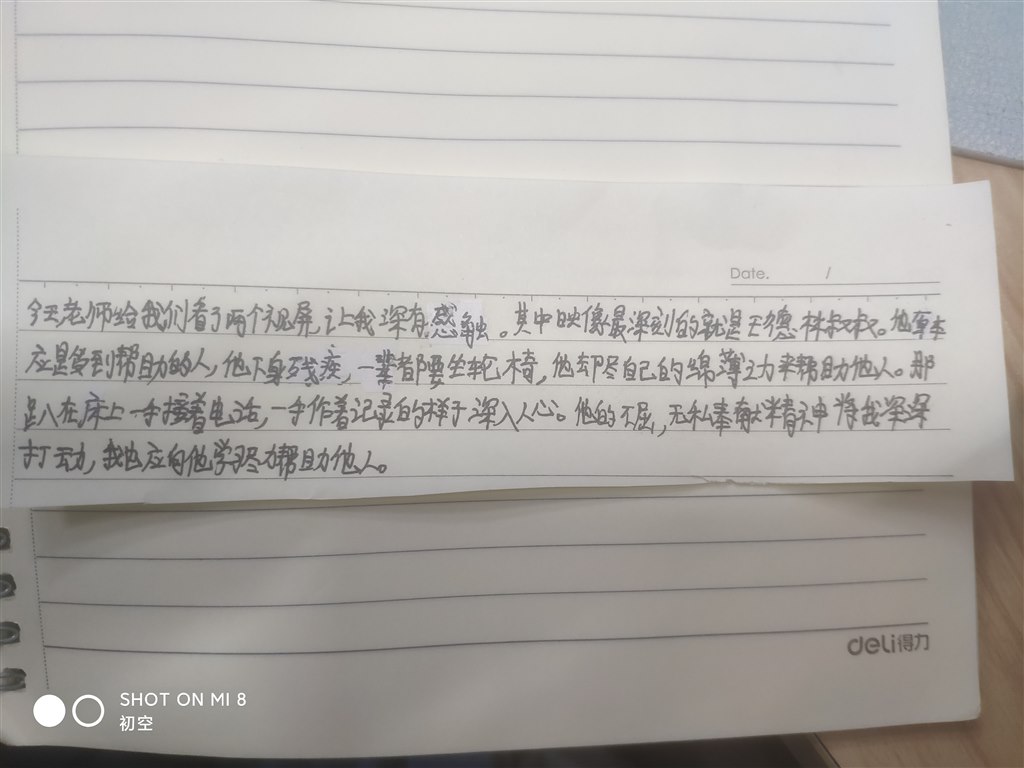 Date. /
今天老师给我们看了两个视屏,让我深有感触。其中映像最深刻的就是王德林叔叔。他本
应是受到帮助的人,他下身残疾,一辈者都要坐轮椅,他却尽自己的绵薄之力来帮助他人。那
趴在床上一手接着电话,一手作着记录的样子深入人心。他的不屈,无私奉献精神将我深深
打动,我也应向他学习尽力帮助他人。
deli得力
SHOT ON MI 8
初空